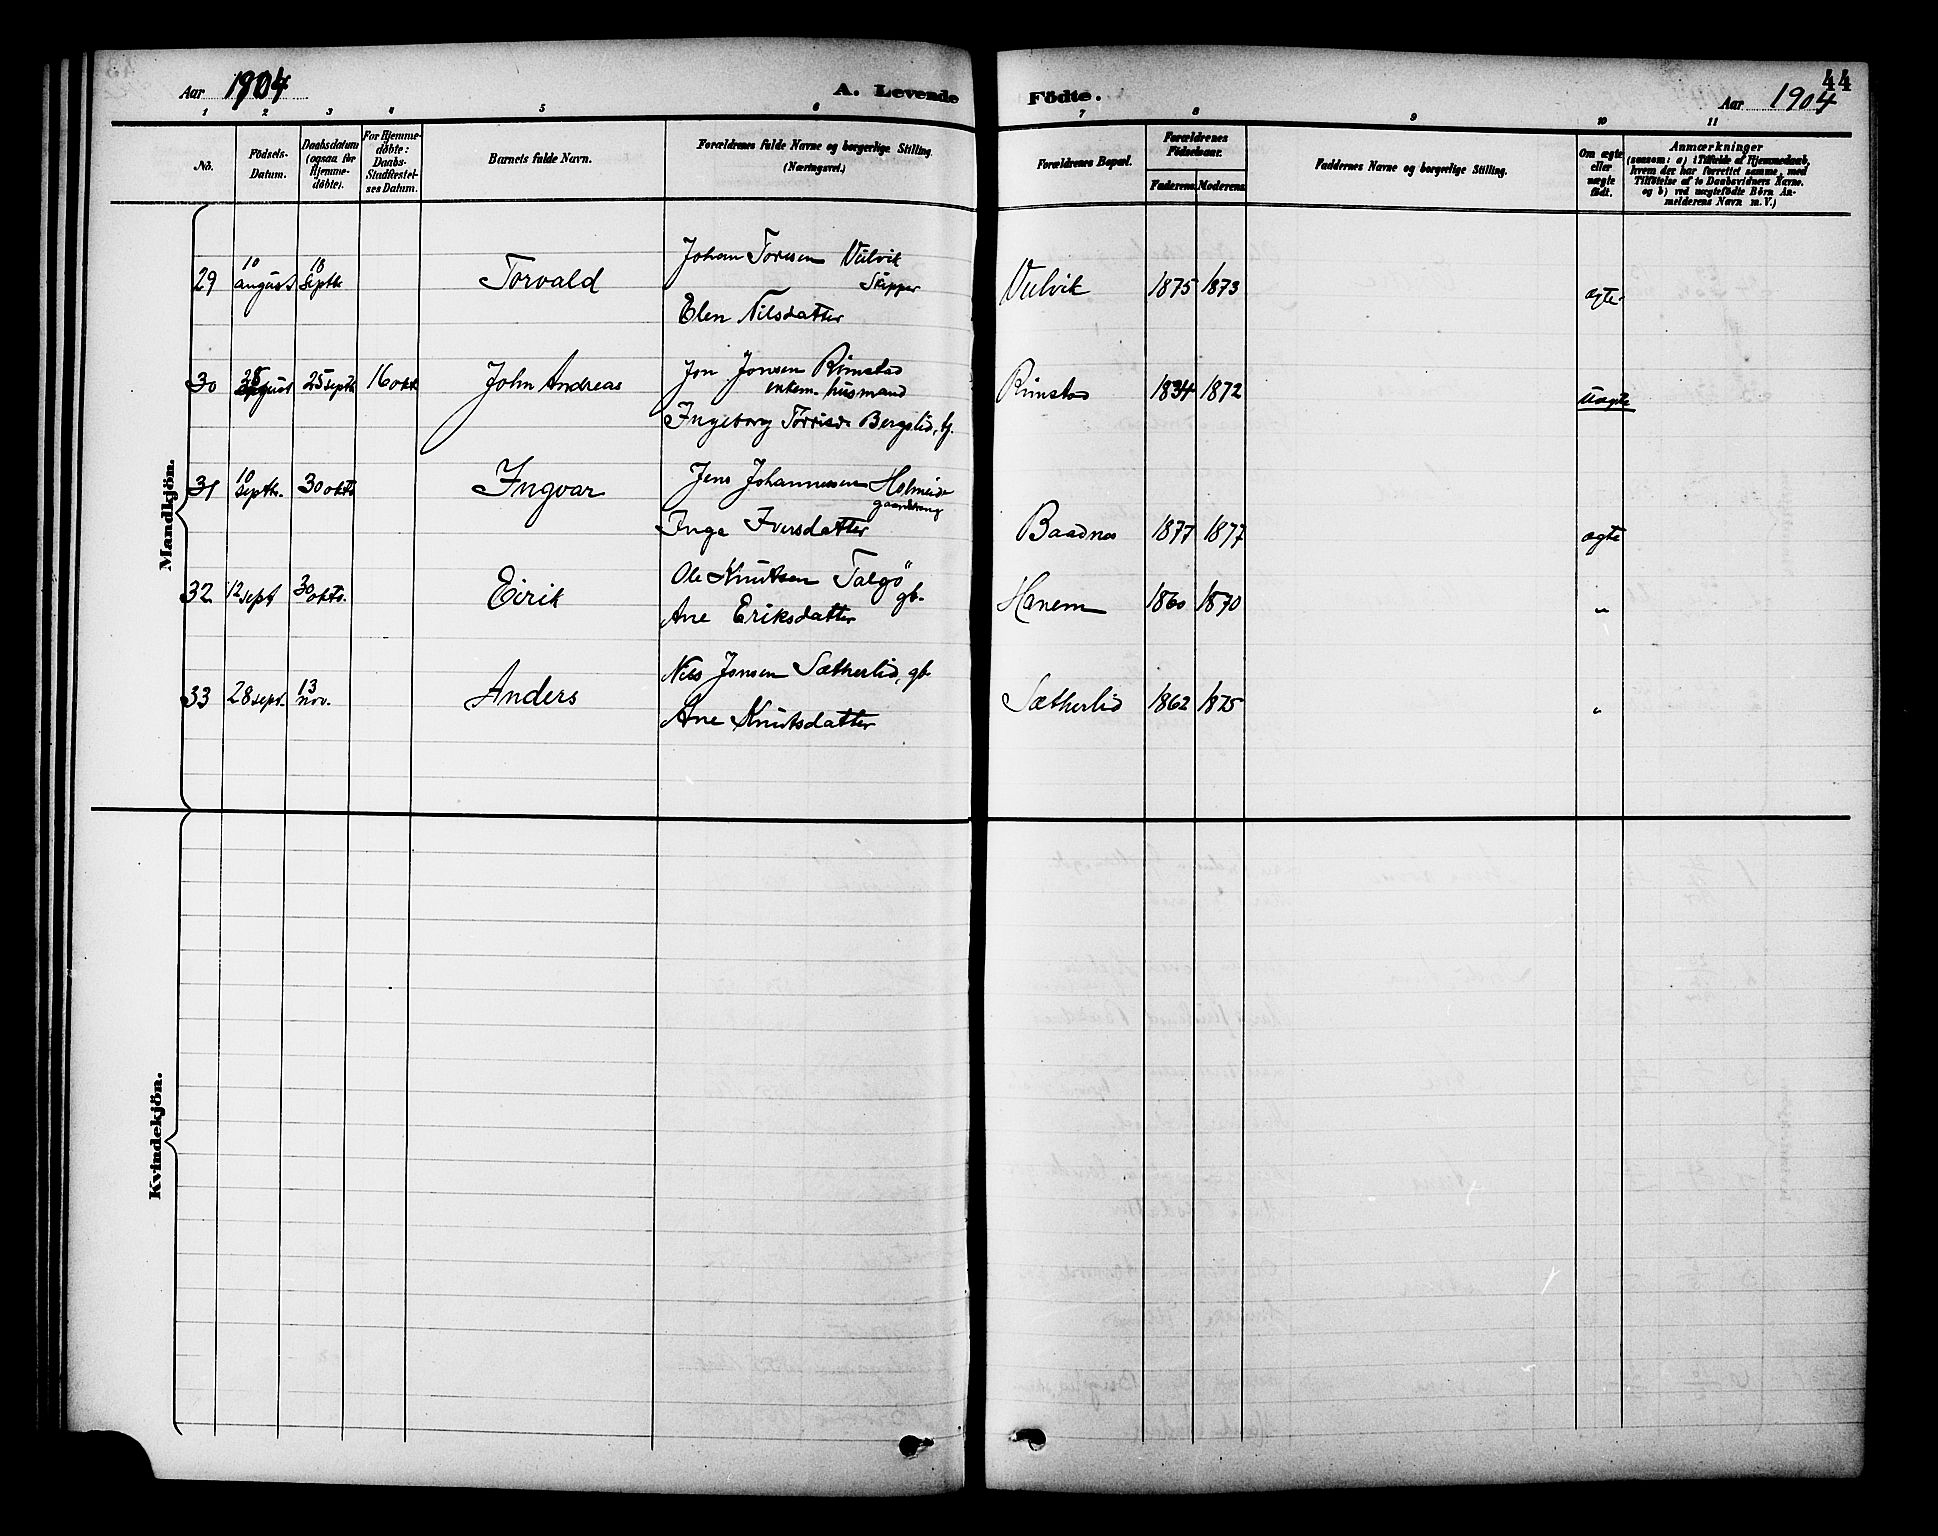 44
Aar 1904
A. Levende Födte.
Aar 1904
1 2 3 4 5 6 7 8 9 10 11
No.
Födsels-Datum.
Daabsdatum (ogsaa for Hjemme-döbte).
For Hjemme-döbte: Daabs-Stadfæstel-ses Datum.
Barnets fulde Navn.
Forældrenes fulde Navne og borgerlige Stilling. (Næringsvei.)
Forældrenes Bopæl.
Forældrenes Födselsaar.
Faderens Moderens
Faddernes Navne og borgerlige Stilling.
Om ægte eller uægte födt.
Anmærkninger
(saasom: a) i Tilfælde af Hjemmedaab,
hvem der har forrettet samme, med
Tilföielse af to Daabsvidners Navne.
og b) ved uægtefödte Börn An-
melderens Navn m. V.)
Mandkjön.
29 10 august 18 septb Torvald Johan Toresen Vulvik Skipper Vulvik 1875 1873 ægte
Elen Nilsdatter
30 august 25 septb 16 okt John Andreas Jon Jonsen Rimstad Rimstad 1834 1872 Uægte
enkem. husmand
Ingeborg Torrisd. Bergslid, tj.
31 10 septb. 30 oktb Ingvar Jens Johannessen Holmeide
Inga Iversdatter Baadnes 1877 1877 ægte
32 12 sept 30 oktb. Eirik Ole Knutsen Talgö gb. Hanem 1860 1870 "
Ane Eriksdatter
33 28 sept. 13 nov. Anders Nils Jonsen Sætherlid, gb. Sætherlid 1862 1875 "
Ane Knutsdatter
Kvindekjön.